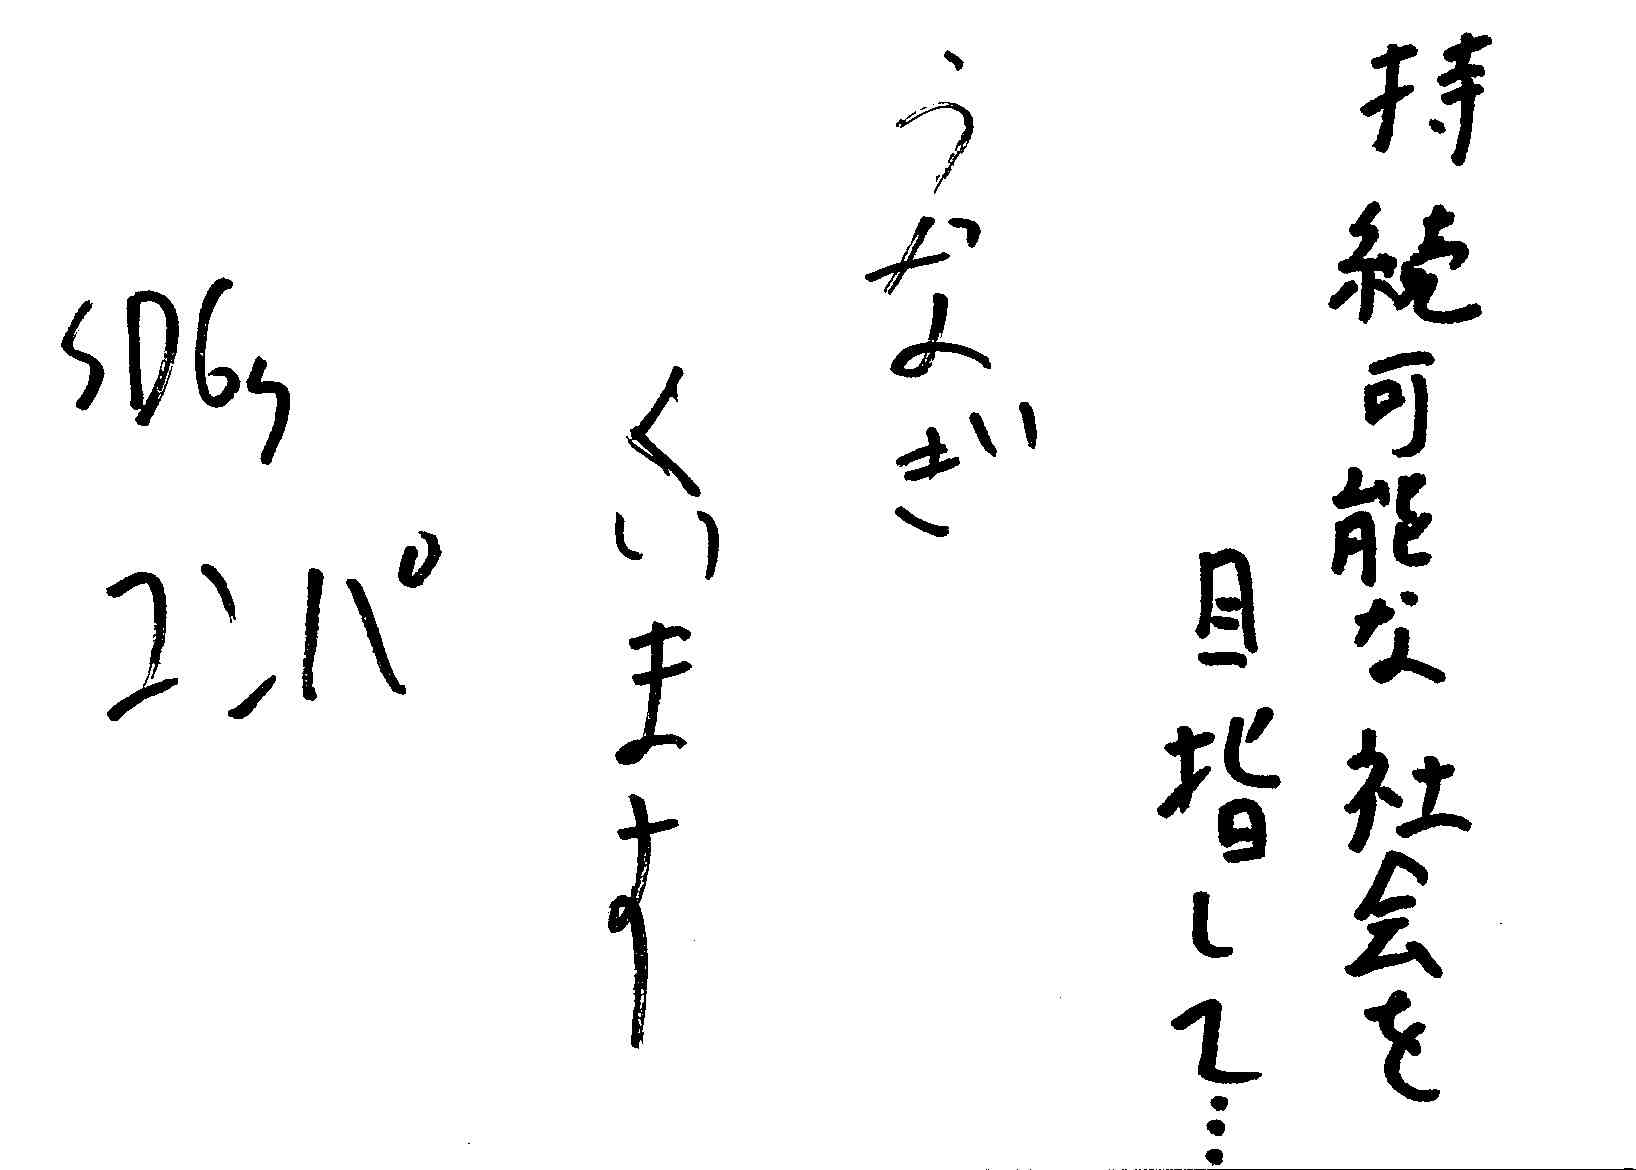 持続可能な社会を
目指して…
うなぎ
くいます
SDGs
コンパ